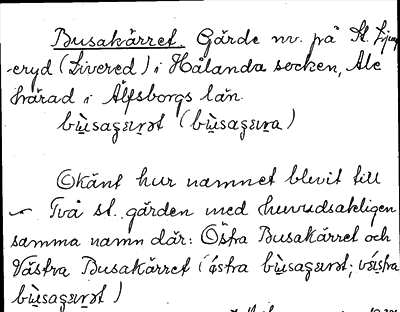 Busakärret. Gärde nv. på St. Ljung-
eryd (Livered) i Hålanda socken, Ale
härad i Älfsborgs län.
bùsagɛʀət (bùsagɛʀa)
Okänt hur namnet blevit till
Två st. gärden med huvudsakligen
samma namn där: Östra Busakärret och
Västra Busakärret (östra bùsagɛʀət; västra
bùsagɛʀət)